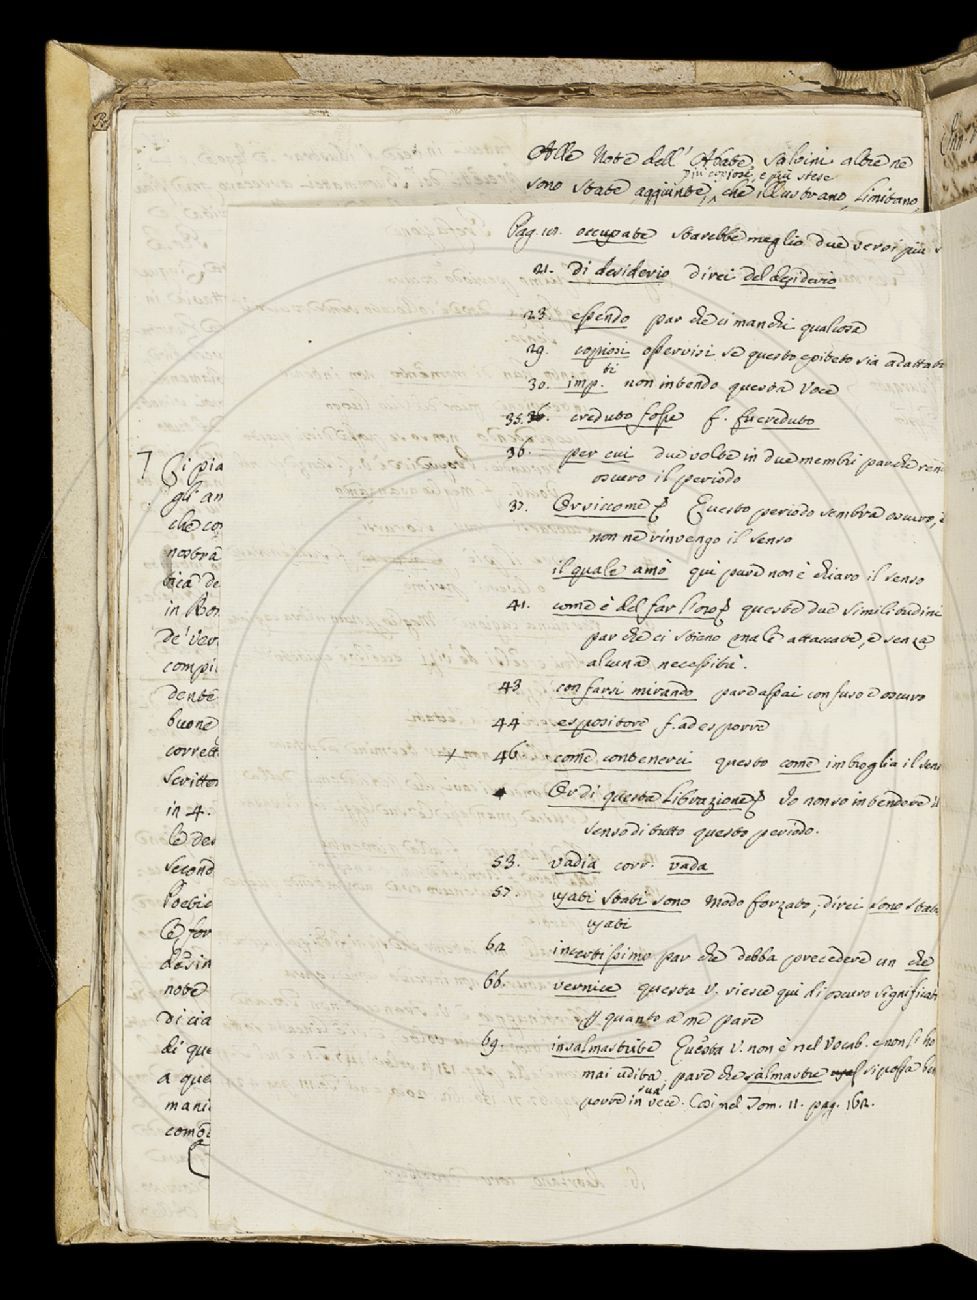 Alle Note dell' Abate Salvini altre ne
più copiose, e più stese
sono state aggiunte, che illustrano, limitano,
Pag. 10. occupate starebbe meglio due versi più
21. di desiderio direi del desiderio
23. essendo par che ci manchi qualcosa
29. copiosi osservisi se questo epiteto sia adattato
30. imp.ti non intendo questa voce
35. creduto fosse f. fu creduto
36. per cui due volte in due membri par che ren
oscuro il periodo
37. Or siccome Questo periodo sembra oscuro, e
non ne rinvengo il senso
il quale amò qui pure non è chiaro il senso
41. come è del far l'oro queste due similitudini
par che ci stieno male attaccate, e senza
alcuna necessità.
43 con farsi mirando pare assai confuso e oscuro
44 espositore f. ad esporre
46 come contenerci questo come imbroglia il sen
Or di questa Librazione Io non so intendere il
senso di tutto questo periodo.
53. vadia corr. vada
57. usati stati sono modo forzato, direi sono stati
usati
62 incertissimo par che debba precedere un che
66. vernice questa V. riesce qui di oscuro significato
p quanto a me pare
69. insalmastrite Questa V. non è nel Vocab. e non l'ho
mai udita, pare che salmastre si possa
porre in sua vece. Così nel Tom. II. pag. 162.
Si pia
gli an
che co
nostra
tica de
in Rom
De' ver
compi
dente
buone
corrett
Scrittor
in 4.
E de
second
Poetic
E, for
desin
note
di cia
di que
a que
mani
come